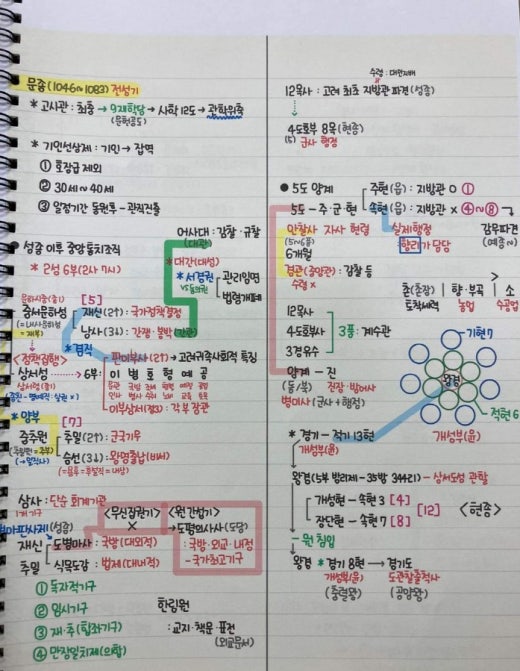 문종(1046~1083) 전성기
* 고사관 : 최충 → 9재학당 → 사학 12도 → 관학위축
(문헌공도)
* 기인선상제 : 기인 → 잡역
① 호장급 제외
② 30세~40세
③ 일정기간 동원후 - 관직진출
어사대 : 감찰·규찰
(대관)
● 성종 이후 중앙통치조직
* 2성 6부(2사 7시)
* 대간(대성)
* 서경권
관리임명
법령개폐
윤하시중(종1)
[5]
중서문하성
재신(2↑) : 국가정책결정
낭사(3↓) : 간쟁·봉박(간관)
* 겸직
<정책집행>
판이부사(2↑) → 고려귀족사회적 특징
상서성 → 6부 : 이 병 호 형 예 공
이부상서(정3) : 각부 장관
* 양부
[7]
중추원
추밀(2↑) : 군국기무
승선(3↓) : 왕명출납(비서)
삼사 : 단순 회계기관
<무신집권기>
<원간섭기>
×
→ 도평의사사(도당)
(성종)
재신
도병마사 : 국방(대외적)
: 국방·외교·내정
추밀
식목도감 : 법제(대내적)
- 국가최고기구
① 독자적기구
② 임시기구
③ 재·추(합좌기구)
④ 만장일치제(의합)
한림원
: 교지·책문·표전
(외교문서)
12목사 : 고려 최초 지방관 파견(성종)
4도호부 8목(현종)
(5) 군사 행정
● 5도 양계
주현(읍) : 지방관 O ①
5도 - 주·군·현
속현(읍) : 지방관 × ④~⑧
안찰사 자사 현령
실제행정
감무파견
(5~6품)
: 향리가 담당
(예종~)
6개월
경관(중앙관) : 감찰 등
수령 ×
촌(촌장)
향·부곡
소
토착세력
농업
수공업
12목사
4도호부사
3품 : 계수관
3경유수
양계 - 진
(동/북) 진장 방어사
병마사(군사+행정)
기현 7
왕경
적현 6
* 경기 - 적기 13현
개성부(윤)
개성부(윤)
왕경(5부 방리제 - 35방 344리) - 상서도성 관할
개성현 - 속현 3 [4]
장단현 - 속현 7 [8]
[12]
<현종>
- 원 침입
왕경 * 경기 8현 → 경기도
개성부(윤)
도관찰출척사
(충렬왕)
(공양왕)